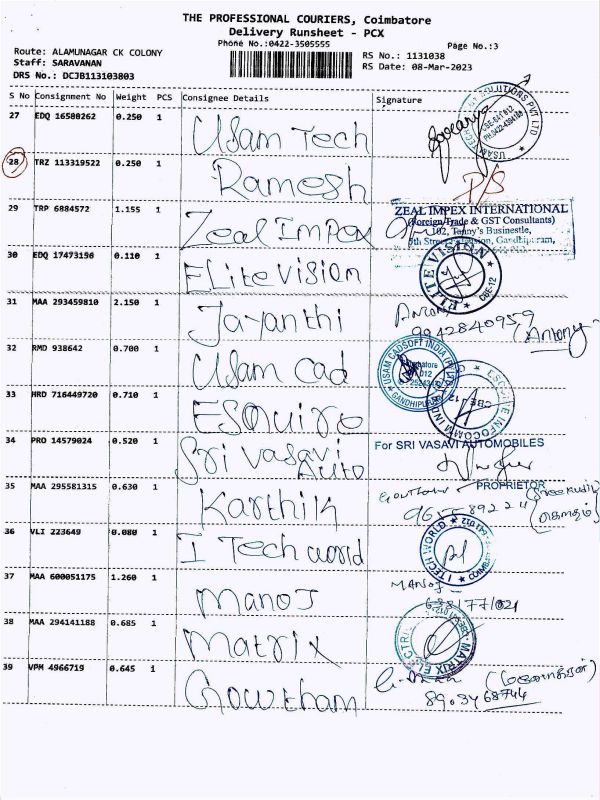 THE PROFESSIONAL COURIERS, Coimbatore
Delivery Runsheet - PCX
Phone No.:0422-3505555
Page No.:3
Route: ALAMUNAGAR CK COLONY
Staff: SARAVANAN
DRS No.: DCJB113103803
RS No.: 1131038
RS Date: 08-Mar-2023
S No Consignment No Weight PCS Consignee Details Signature
27 EDQ 16580262 0.250 1 Usam Tech
28 TRZ 113319522 0.250 1 Ramesh
29 TRP 6884572 1.155 1 Zeal Impex
ZEAL IMPEX INTERNATIONAL
(Foreign Trade & GST Consultants)
102, Tenny's Businestle,
30 EDQ 17473156 0.110 1 Elite Vision
ELITE VISION CBE-12
31 MAA 293459810 2.150 1 Jayanthi
Antony
9042840959
(Antony)
32 RMD 938642 0.700 1 Usam Cad
USAM CADSOFT INDIA
33 HRD 716449720 0.710 1 Esquire
ESQUIRE INFOCOMM
34 PRO 14579024 0.520 1 Sri Vasavi Auto
For SRI VASAVI AUTOMOBILES
PROPRIETOR
35 MAA 295581315 0.630 1 Karthik
36 VLI 223649 0.080 1 I Tech world
I TECH WORLD
37 MAA 600051175 1.260 1 Manoj
MANOJ
38 MAA 294141188 0.685 1 Matrix
MATRIX ELECTRI
39 VPM 4966719 0.645 1 Gowtham
89034 68744